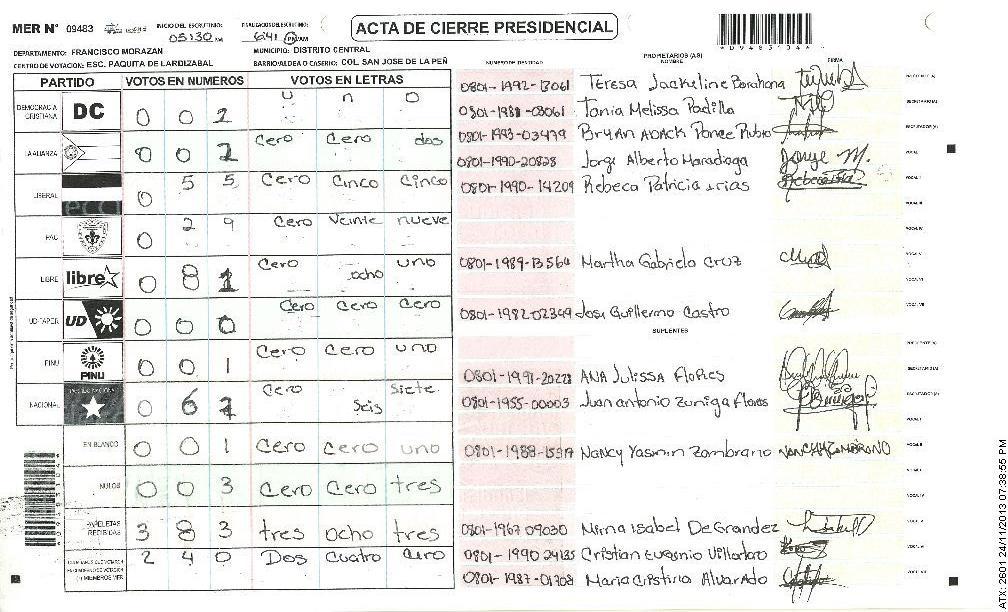 MER N° 09483
INICIO DEL ESCRUTINIO: 05:30 AM
FINALIZACION DEL ESCRUTINIO: 6:41 PM/AM
ACTA DE CIERRE PRESIDENCIAL
DEPARTAMENTO: FRANCISCO MORAZAN
MUNICIPIO: DISTRITO CENTRAL
CENTRO DE VOTACION: ESC. PAQUITA DE LARDIZABAL
BARRIO/ALDEA O CASERIO: COL. SAN JOSE DE LA PEÑ
PARTIDO VOTOS EN NUMEROS VOTOS EN LETRAS
DEMOCRACIA CRISTIANA DC 0 0 2 u n o
LA ALIANZA 0 0 2 Cero Cero dos
LIBERAL 0 5 5 Cero Cinco Cinco
PAC 0 2 9 Cero Veinte nueve
LIBRE libre 0 8 1 Cero ocho uno
UD-FAPER UD 0 0 0 Cero Cero Cero
PINU PINU 0 0 1 Cero Cero uno
NACIONAL 0 6 7 Cero Seis Siete
EN BLANCO 0 0 1 Cero Cero uno
NULOS 0 0 3 Cero Cero tres
PAPELETAS RECIBIDAS 3 8 3 tres ocho tres
2 4 0 Dos Cuatro Cero
NUMERO DE IDENTIDAD
PROPIETARIOS (AS)
NOMBRE
FIRMA
0801-1992-13061 Teresa Jackeline Barahona
0801-1988-03061 Tania Melissa Padilla
0801-1993-03479 Bryan Ponce Rubio
0801-1990-20828 Jorge Alberto Maradiaga Jorge M.
0801-1990-14209 Rebeca Patricia Arias
0801-1989-13564 Martha Gabriela Cruz
0801-1982-02349 Jose Guillermo Castro
SUPLENTES
0801-1991-20228 ANA Julissa Flores
0801-1955-00003 Juan antonio Zuniga Flores
0801-1988-15317 Nancy Yasmin Zambrano NANCY ZAMBRANO
0801-1967 09030 Mirna Isabel De Grandez
0801-1990 24135 Cristian Eugenio Villartoro
0801-1987-01708 Maria Cristina Alvarado
ATX-2601 24/11/2013 07:38:55 PM